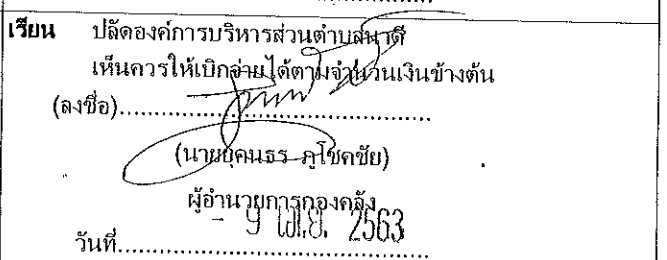 เรียน ปลัดองค์การบริหารส่วนตำบลนาดี
เห็นควรให้เบิกจ่ายได้ตามจำนวนเงินข้างต้น
(ลงชื่อ)........................................
(นายยุคนธร ภูโชคชัย)
ผู้อำนวยการกองคลัง
- 9 เม.ย. 2563
วันที่........................................